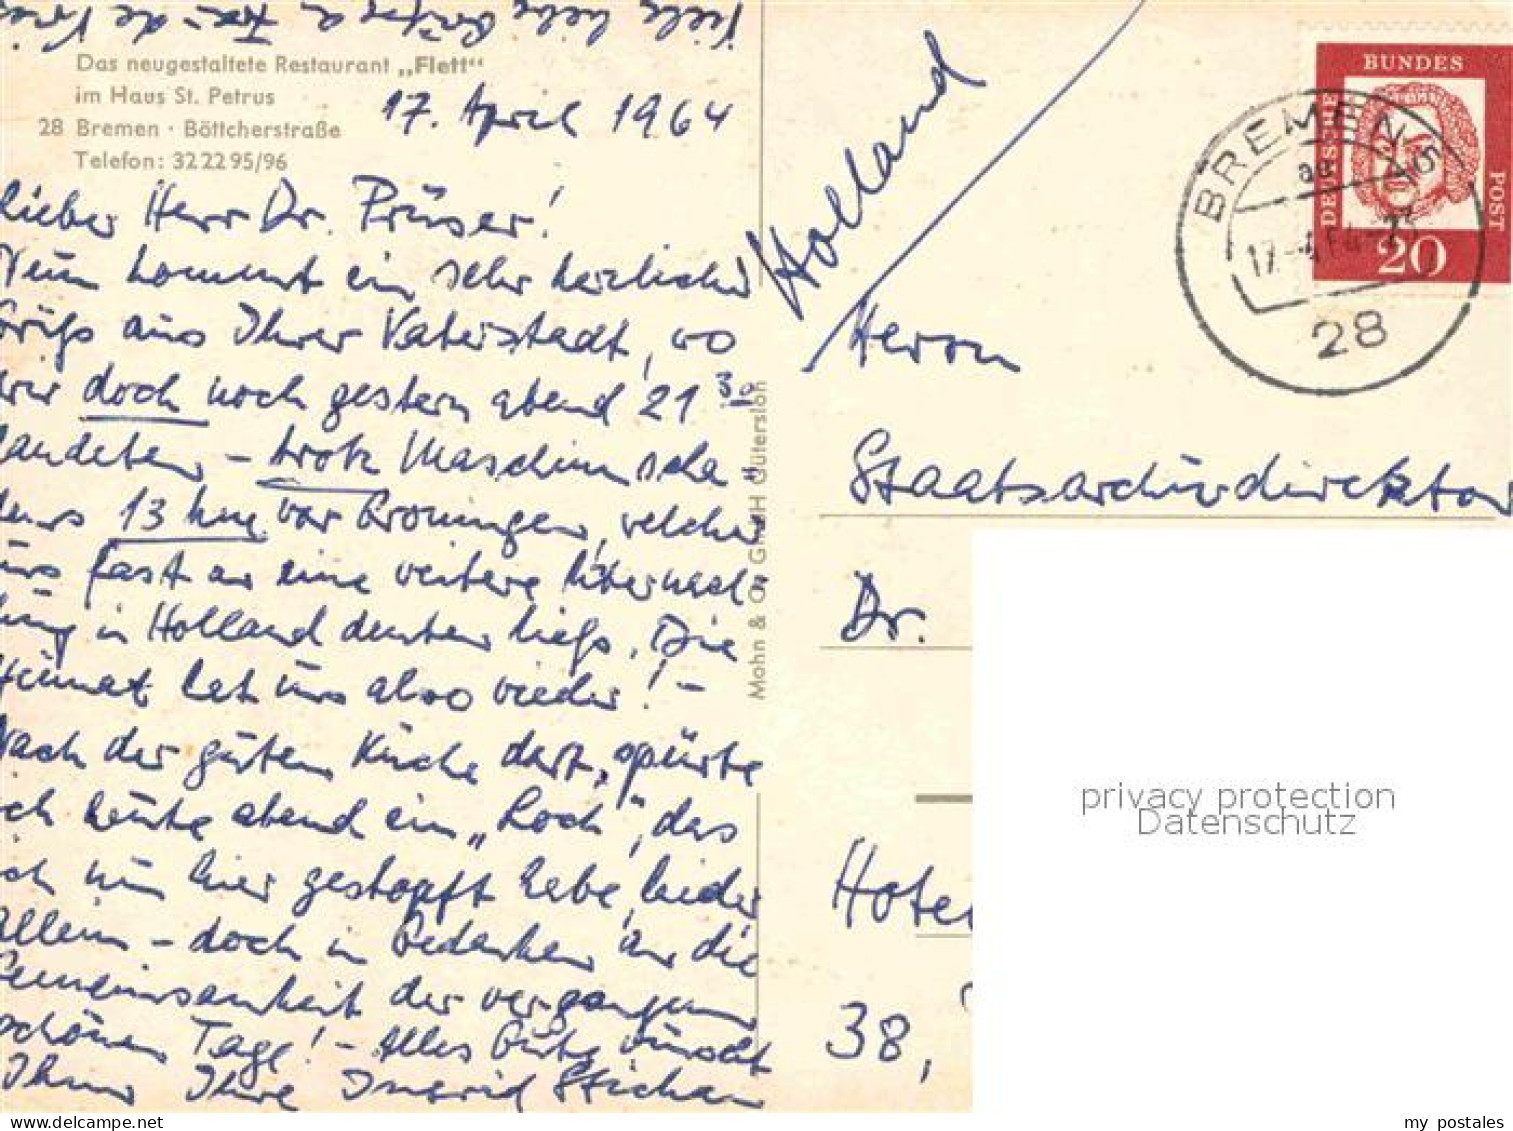 Viele liebe Grüße a
Das neugestaltete Restaurant „Flett“
im Haus St. Petrus
28 Bremen · Böttcherstraße
Telefon: 32 22 95/96
17. April 1964
Lieber Herr Dr. Prüser!
Nun kommt ein sehr herzlicher
Grüß aus Ihrer Vaterstadt, wo
wir doch noch gestern abend 21 30
landeten – trotz Maschinenscha
dens 13 km vor Groningen, welcher
uns fast an eine weitere Übernach-
tung in Holland denken ließ. Die
Heimat hat uns also wieder! –
Nach der guten Küche dort, spürte
ich heute abend ein „Loch“, das
ich nun hier gestopft habe, leider
allein – doch in Gedanken an die
Gemeinsamkeit der vergangenen
schönen Tage! – Alles Gute wünscht
Ihnen Ihre Ingrid
Mohn & Co GmbH Gütersloh
Holland
BUNDES
DEUTSCHE
POST
20
BREMEN 5
17.-4.64-23
28
Herrn
Staatsarchivdirektor
Dr.
Hotel
38,
privacy protection
Datenschutz
my postales